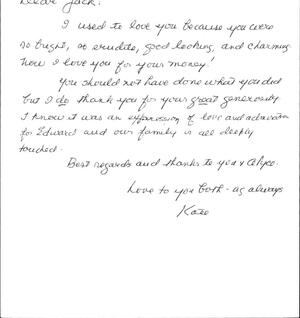 Dear Jack:
I used to love you because you were
so bright, so erudite, good looking, and charming
Now I love you for your money!
You should not have done what you did
but I do thank you for your great generosity
I know it was an expression of love and admiration
for Edward and our family is all deeply
touched.
Best regards and thanks to you &
Love to you both - as always